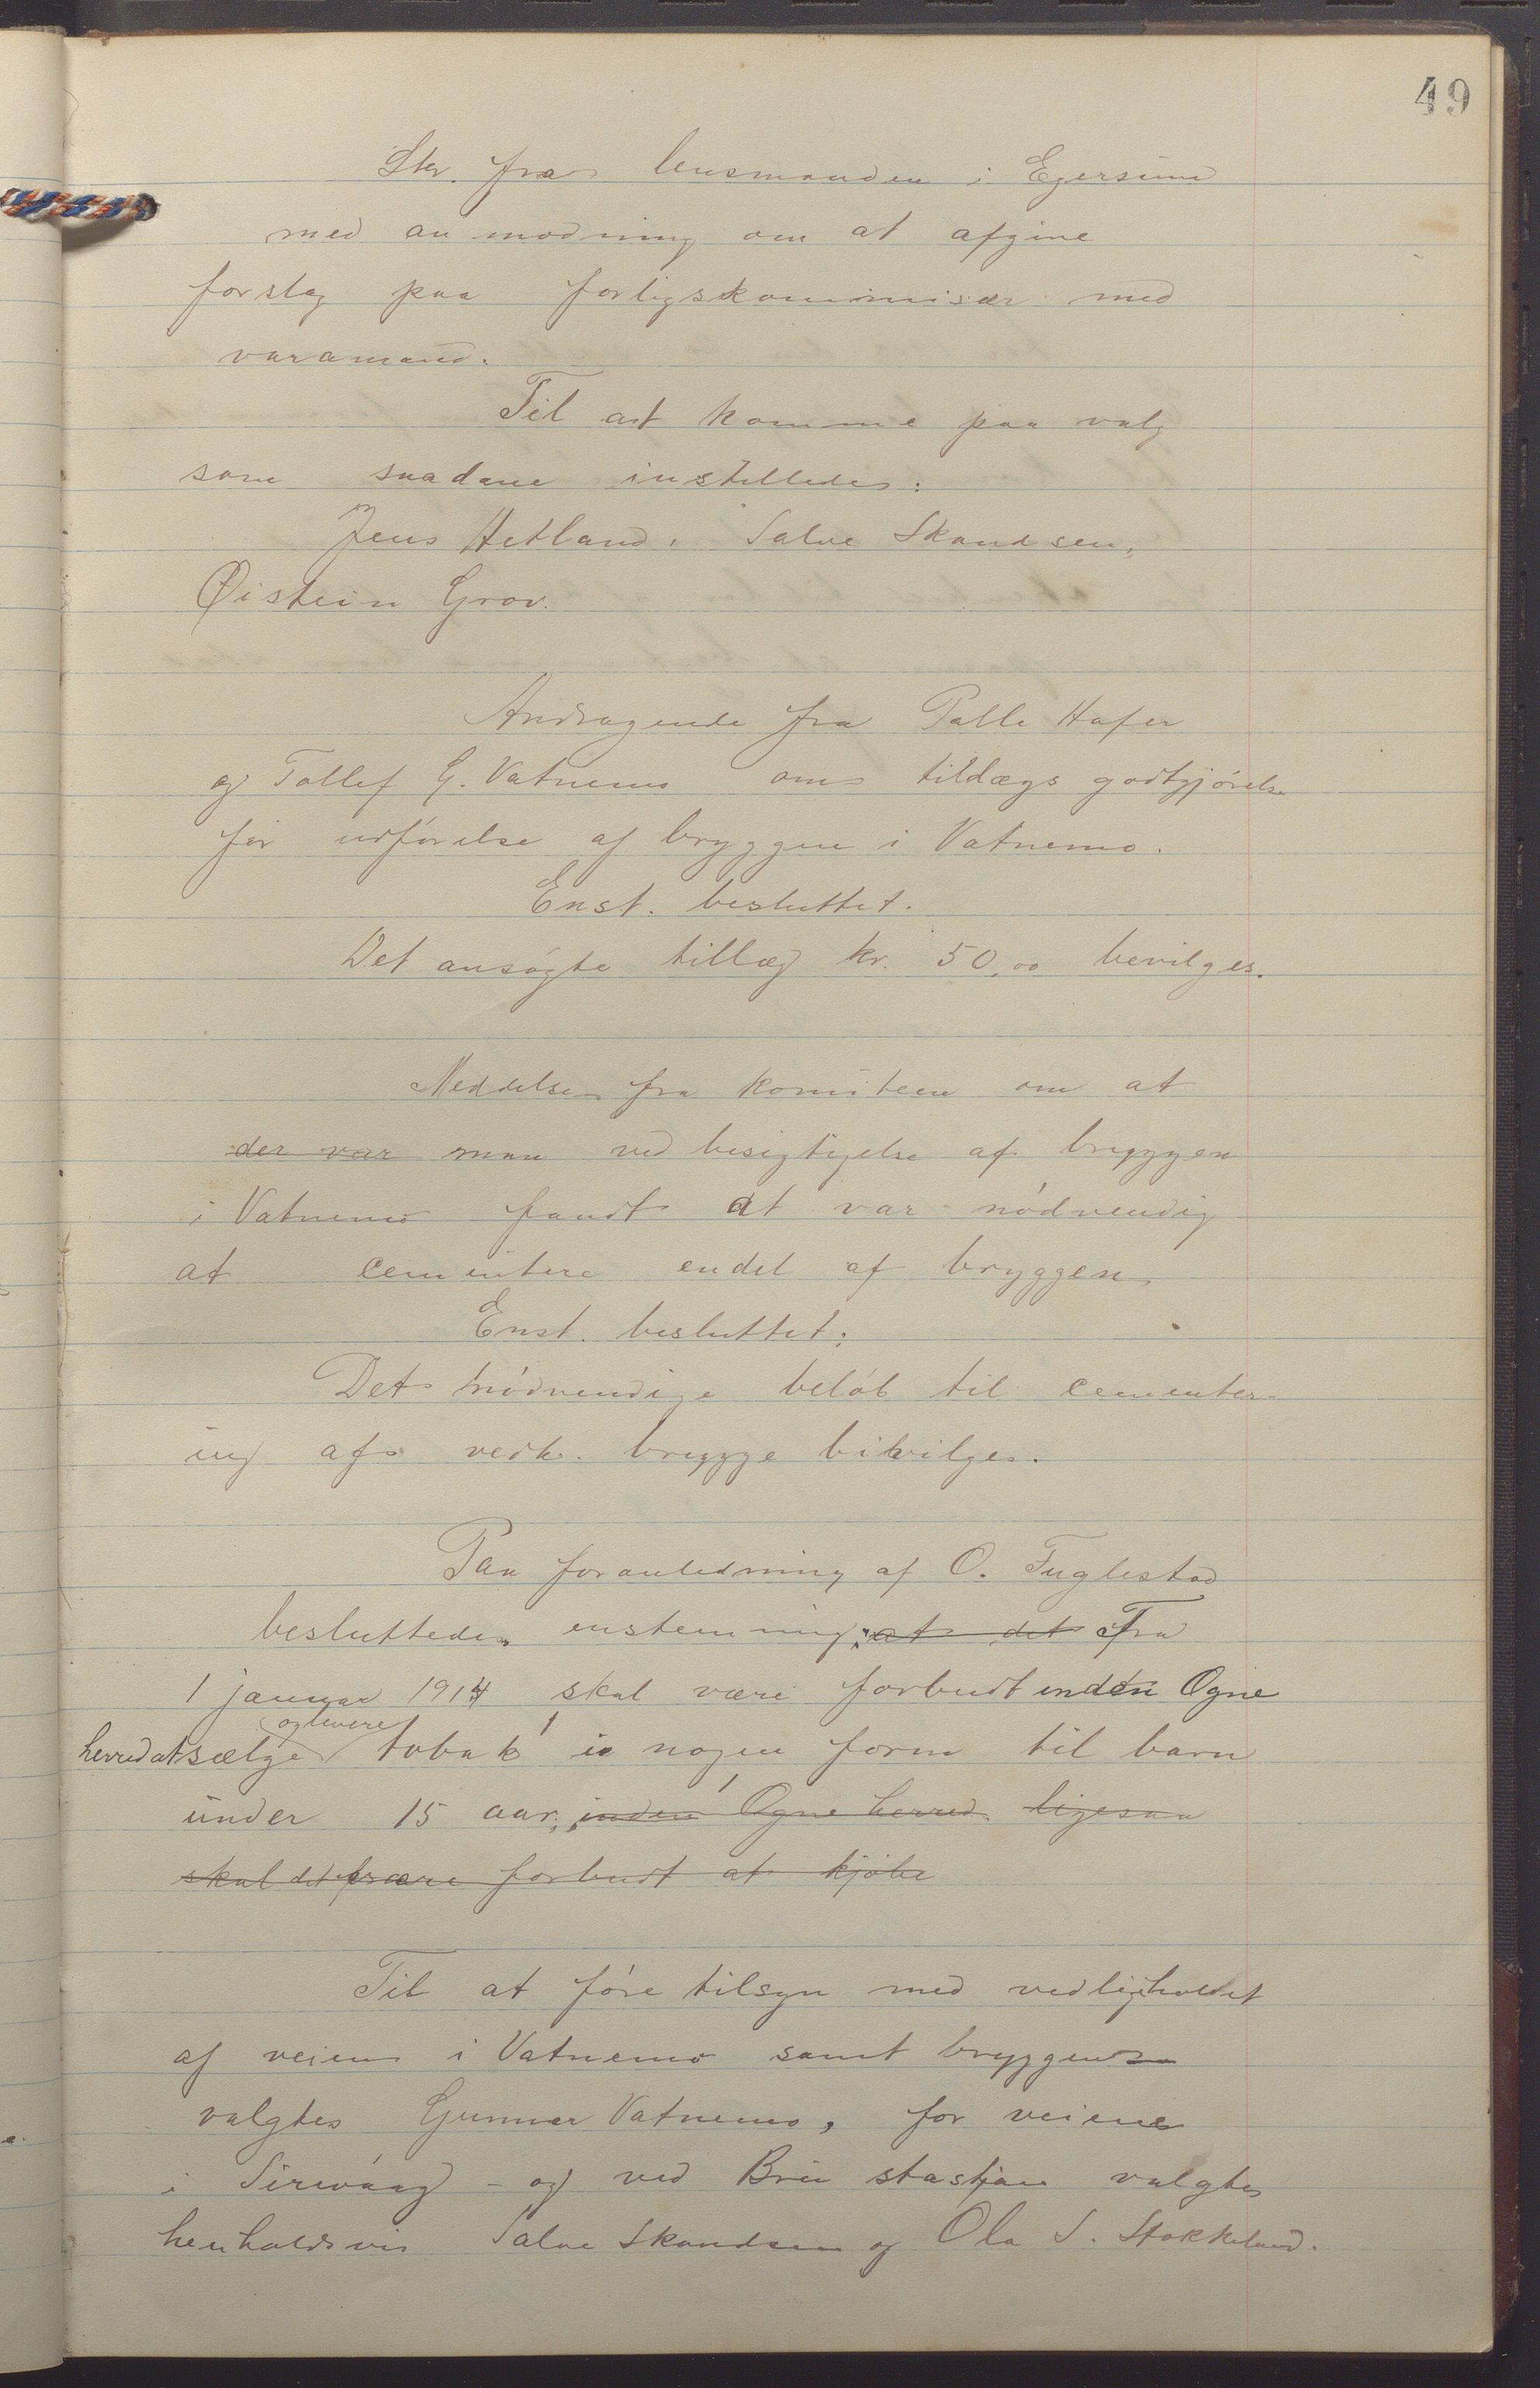 49
Skr. fra lensmanden i Egersund
med anmodning om at afgive
forslag paa forligskommisær med
varamand.
Til at komme paa valg
som saadane instilledes:
Jens Hetland, Salve Skandsen,
Øistein Grov.
Andragende fra Palle Hafer
og Tollef G. Vatnemo om tildægs godtgjörelse
for udförelse af bryggen i Vatnemo.
Enst. besluttet.
Det ansögte tillæg kr. 50,00 bevilges.
Meddelse fra komiteen om at
der var man ved besigtigelse af bryggen
i Vatnemo fandt at var nödvendig
at cementere endel af bryggen,
Enst. besluttet:
Det nödvendige belöb til cementer-
ing af vedk. brygge bivilges.
Paa foranledning af O. Fuglestad
besluttedes enstemmig: at det Fra
1 januar 1914 skal være forbudt inden Ogne
og levere
herred at sælge tobak i nogen form til barn
under 15 aar, inden Ogne herred. ligesaa
skal det være forbudt at kjöbe
Til at före tilsyn med vedligeholdet
af veien i Vatnemo samt bryggen
valgtes Gunnar Vatnemo, for veiene
i Sirevaag - og ved Bru stasjon valgtes
henholdsvis Salve Skandsen og Ola S. Stokkeland.